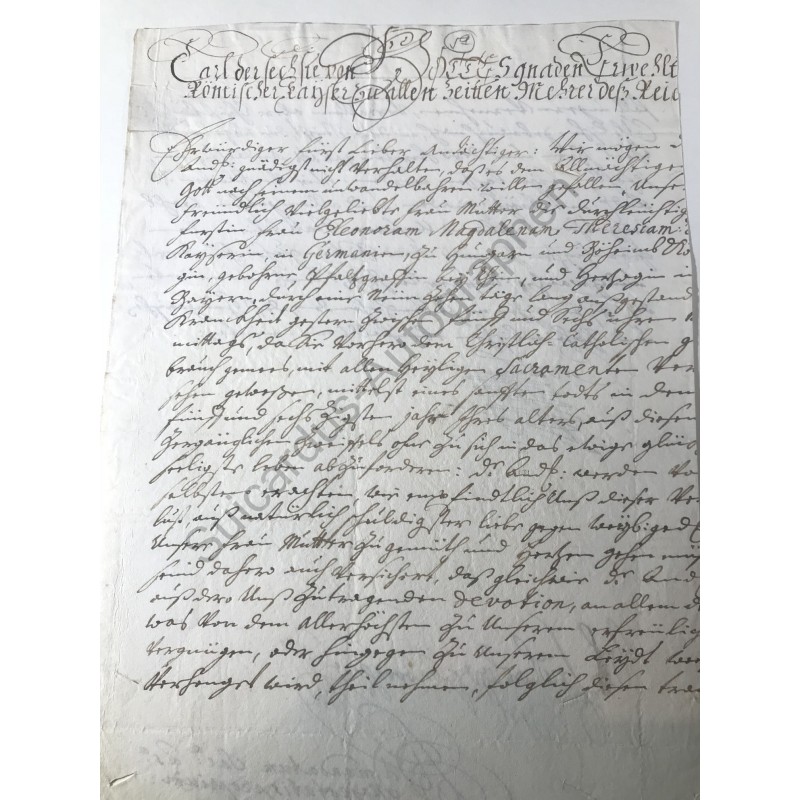 Carl der sechste von GOTTES gnaden Erwehlt
Römischer Kayser zu allen Zeiten Mehrer deß Reic
Ehrwürdiger Fürst Lieber Andächtiger: Wir mögen
And: gnädigst nicht verhalten, daß es dem Allmächtige
Gott nach seinem unwandelbahren willen gefallen, Unse
freundlich Vielgeliebte Frau Mutter die durchleüchtig
fürstin Frau Eleonoram Magdalenam Theresiam
Kayserin, in Germanien, zu Hungarn und Böheimb Kö
gin, gebohrne Pfaltzgräffin bey Rhein, und Hertzogin in
Bayern, durch eine Neün tage lang außgestand
Kranckheit gestern zwischen fünff und Sechs uhren
mittags, da Sie vorhero dem Christlich-Catholischen g
brauch gemees, mit allen Heyligen Sacramenten ver
sehen geweßen, mittelst eines sanfften todts in dem
fünff und sechzigsten jahr Ihres alters, auß diesem
Zergänglichen zweiffels ohne zu sich in das ewige glüc
seeligste leben abzuforderen: De And: werden vo
selbsten erachten, wie empfindlich Unß dieser Ver
lust, auß natürlich schuldigster liebe gegen
Unsere Frau Mutter zu gemüth und Hertzen gehen mü
seind dahero auch versichert, daß gleichwie De And
auß dero Unß zutragenden devotion, an allem de
was von dem Allerhöchsten zu Unserem erfreülig
vergnügen, oder hingegen zu Unserem Leydt
Verhenget wird, theil nehmen, folglich diesen tra
Suicardus-Autographen